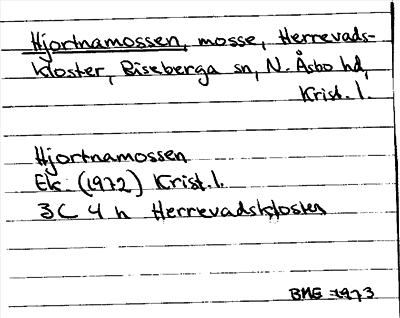 Hjortnamossen, mosse, Herrevads-
kloster, Riseberga sn, N. Åsbo hd,
Krist. l.
Hjortnamossen
Ek (1972) Krist. l.
3C 4h Herrevadskloster
BME 1973